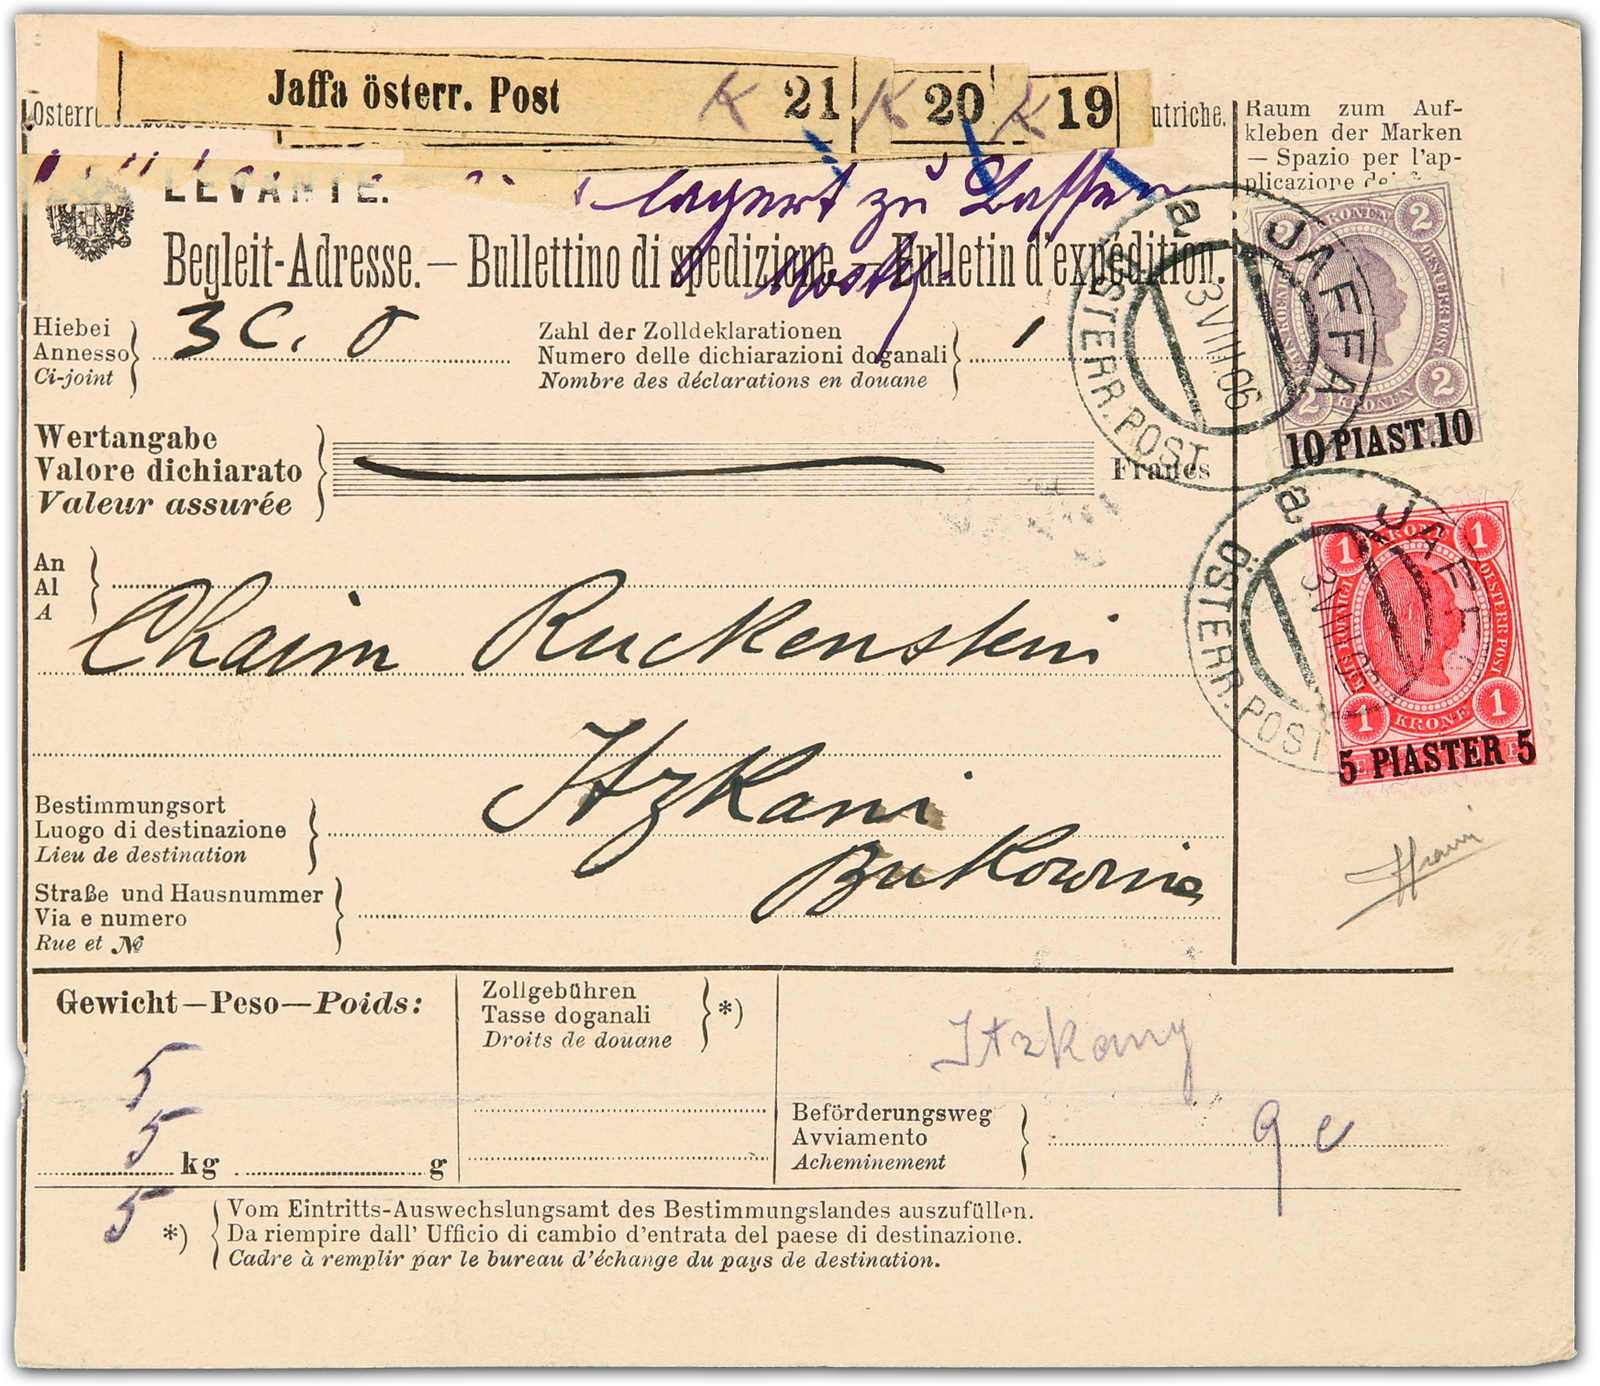 Jaffa österr. Post K 21 K 20 K 19
utriche.
Raum zum Auf-
kleben der Marken
— Spazio per l'ap-
plicazione
LEVANTE.
lagert zu Lasten
Begleit-Adresse. — Bullettino di spedizione. — Bulletin d'expédition.
Hiebei
Annesso
Ci-joint
3 C. 0
Zahl der Zolldeklarationen
Numero delle dichiarazioni doganali
Nombre des déclarations en douane
1
Wertangabe
Valore dichiarato
Valeur assurée
Francs
An
Al
A
Chaim Ruckenstein
Itzkani
Bukowina
Bestimmungsort
Luogo di destinazione
Lieu de destination
Straße und Hausnummer
Via e numero
Rue et №
a JAFFA
3 VIII.06
ÖSTERR. POST
2 KRONEN 2
OESTERR POST
2 KRONEN 2
10 PIAST. 10
a JAFFA
3 VIII 06
ÖSTERR. POST
1 KRONE 1
OESTERR POST
1 KRONE 1
5 PIASTER 5
Gewicht—Peso—Poids:
5
5
kg g
5
Zollgebühren
Tasse doganali
Droits de douane
*)
Itzkany
Beförderungsweg
Avviamento
Acheminement
*)
Vom Eintritts-Auswechslungsamt des Bestimmungslandes auszufüllen.
Da riempire dall' Ufficio di cambio d'entrata del paese di destinazione.
Cadre à remplir par le bureau d'échange du pays de destination.